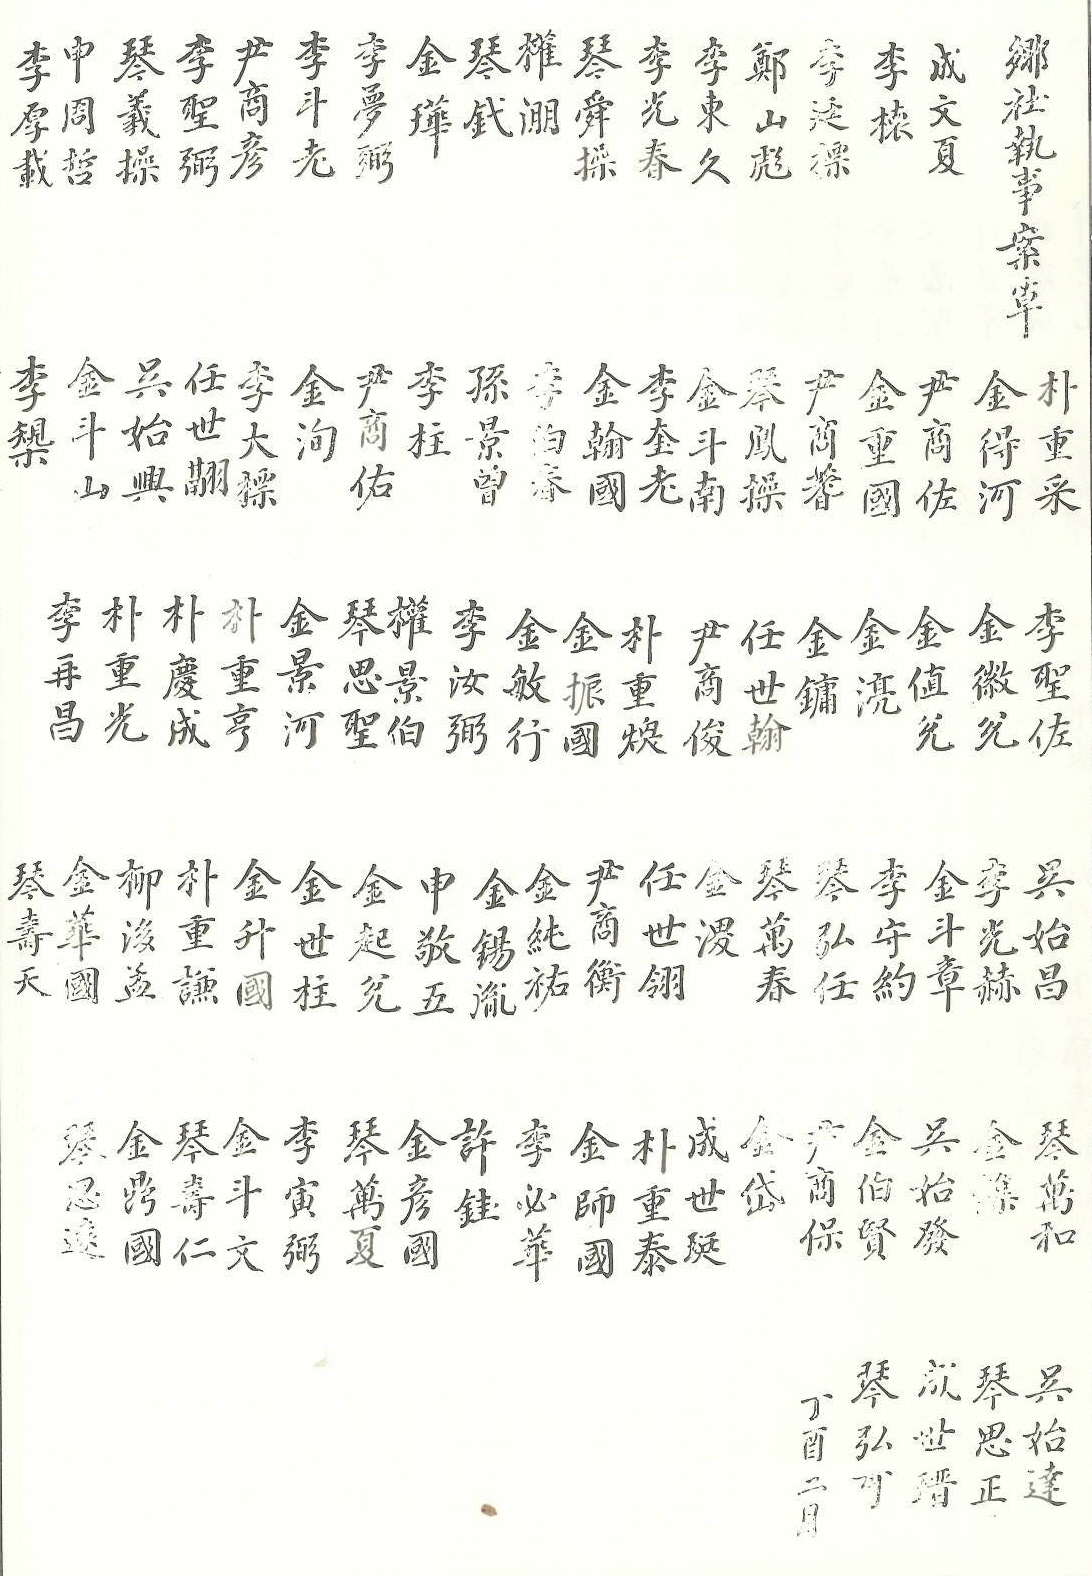 鄕社執事案草
成文夏
李榱
李廷標
鄭山彪
李東久
李光春
琴舜操
權溯
琴釴
金墷
李夢弼
李斗老
尹商彦
李聖弼
琴義操
申周哲
李厚載
朴重采
金得河
尹商佐
金重國
尹商耆
琴鳳操
金斗南
李奎老
金翰國
李伯春
孫景曾
李柱
尹商佑
金洵
李大標
任世翮
吳始興
金斗山
李槼
李聖佐
金徽兊
金値兊
金湸
金鏞
任世翰
尹商俊
朴重煥
金振國
金敏行
李汝弼
權景伯
琴思聖
金景河
朴重亨
朴慶成
朴重光
李再昌
吳始昌
李光赫
金斗章
李守約
琴弘任
琴萬春
金溭
任世翎
尹商衡
金純祐
金錫胤
申敬五
金起兊
金世柱
金升國
朴重謙
柳浚孟
金華國
琴壽天
琴萬和
金
吳始發
金伯賢
尹商保
金岱
成世珽
朴重泰
金師國
李必華
許銈
金彦國
琴萬夏
李寅弼
金斗文
琴壽仁
金鼎國
琴思遠
吳始達
琴思正
成世瑨
琴弘
丁酉二月